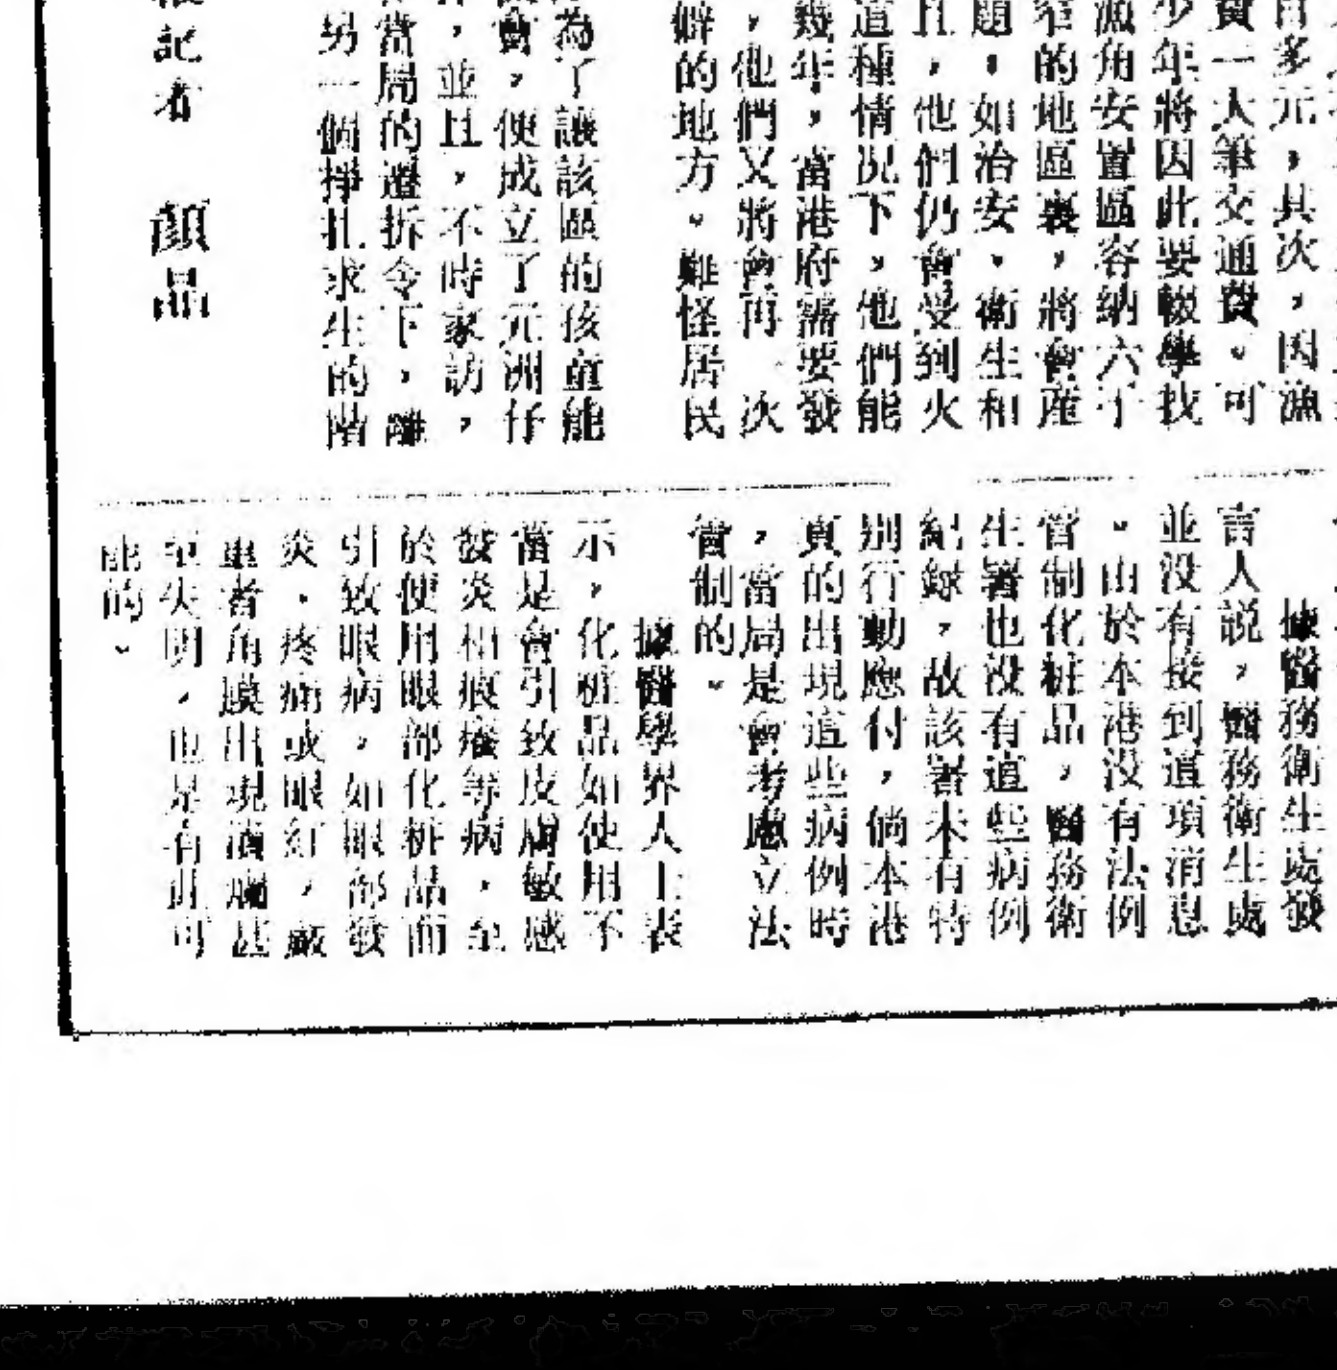 百多元,其次,因漁
費一大筆交通費。可
少年將因此要輟學找
漁角安置區容納六千
窄的地區裏,將會産
題,如治安、衛生和
且,他們仍會受到火
這種情况下,他們能
幾年,當港府需要發
,他們又將會再一次
僻的地方。難怪居民
為了讓該區的孩童能
會,便成立了元洲仔
,並且,不時家訪,
當局的遷拆令下,離
另一個掙扎求生的階
記者 顏品
據醫務衛生處發
言人説,醫務衛生處
並没有接到這項消息
。由於本港没有法例
管制化粧品,醫務衛
生署也没有這些病例
紀録,故該署未有特
别行動應付,倘本港
真的出現這些病例時
,當局是會考慮立法
管制的。
據醫學界人士表
示,化粧品如使用不
當是會引致皮膚敏感
發炎和痕癢等病,至
於使用眼部化粧品而
引致眼病,如眼部發
炎、疼痛或眼紅,嚴
重者角膜出現潰爛甚
至失明,也是有此可
能的。